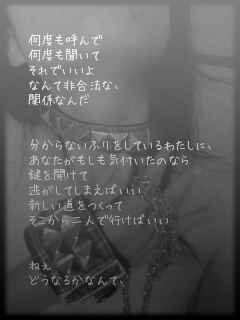 何度も呼んで
何度も聞いて
それでいいよ
なんて非合法な、
関係なんだ
分からないふりをしているわたしに、
あなたがもしも気付いたのなら
鍵を開けて
逃がしてしまえばいい
新しい道をつくって
そこから二人で行けばいい
ねぇ
どうなるかなんて、